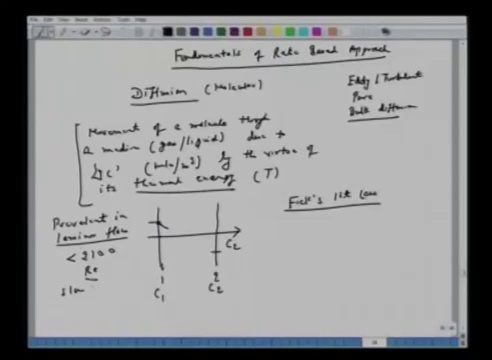 Fundamentals of Rate Based Approach
Diffusion (Molecular)
Eddy / Turbulent
Pore
Bulk diffusion
Movement of a molecule through
a medium (gas/liquid) due to
'Δc' (mole/m³) by the virtue of
its thermal energy (T)
Fick's 1st Law
Prevalent in
laminar flow
< 2100
Re
slow
C₂
1
2
C₁
C₂